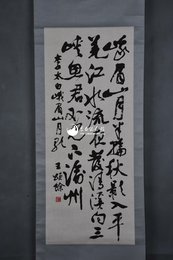 峨眉山月半輪秋影入平
羌江水流夜發清溪向三
峽思君不見下渝州
李太白峨眉山月歌
王